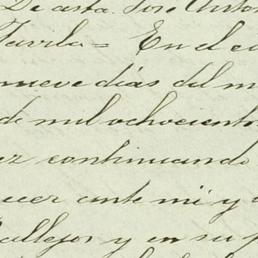 De asta. José Anton
Favila = En el ca
nueve días del m
de mil ochociento
ez continuando
ecer ante mi y
allejos y en su p